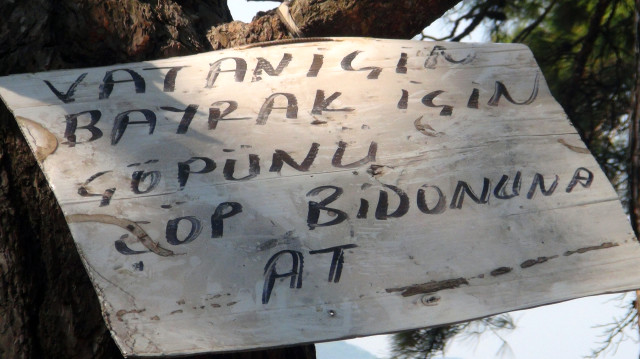 VATAN İÇİN
BAYRAK İÇİN
ÇÖPÜNÜ
ÇÖP BİDONUNA
AT